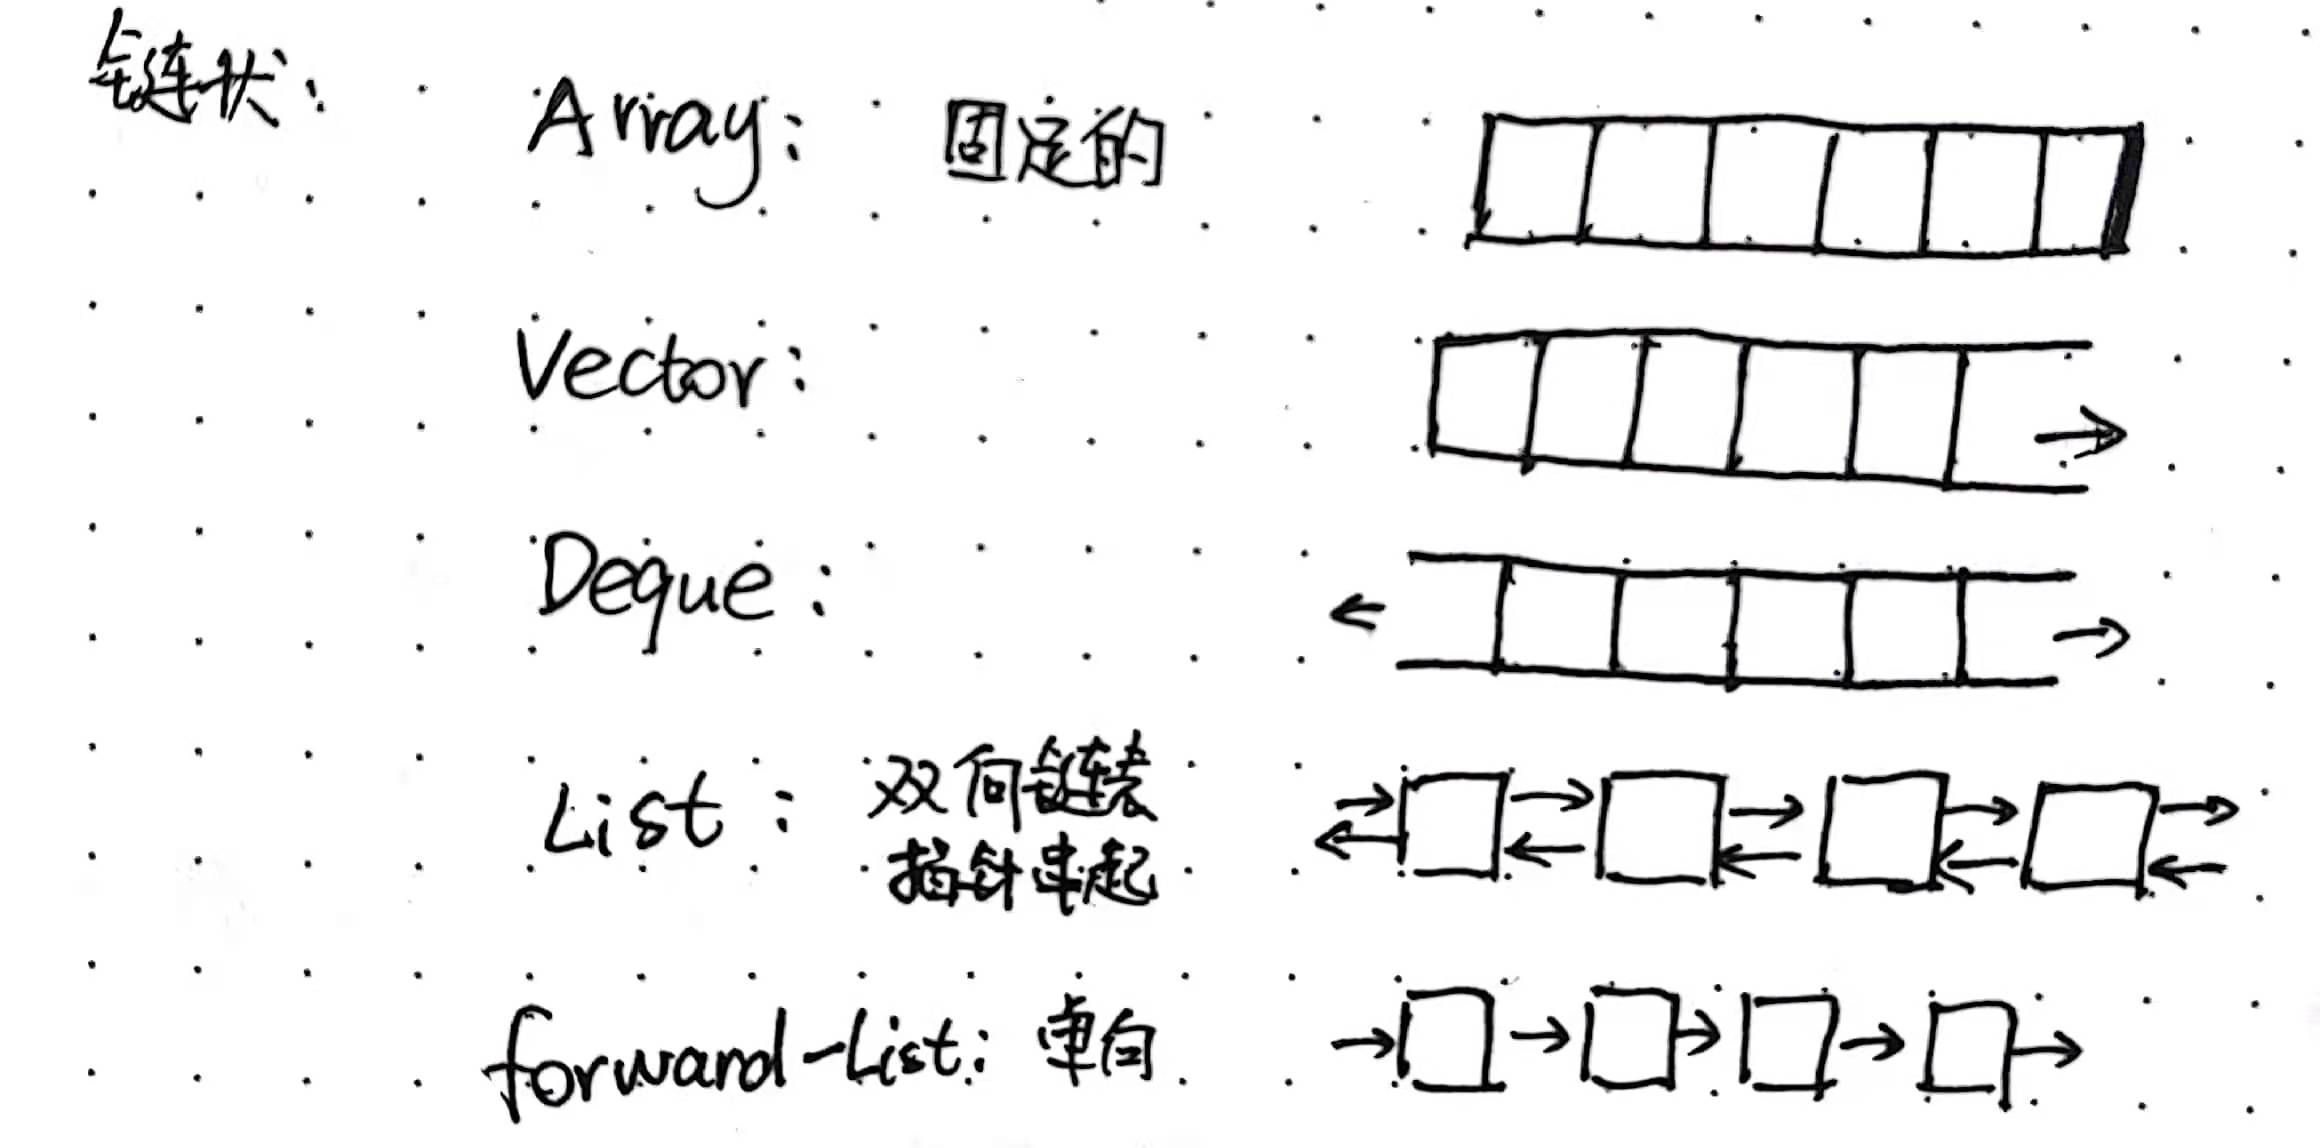 链状: Array: 固定的
Vector:
Deque:
List: 双向链表
指针串起
forward-List: 单向